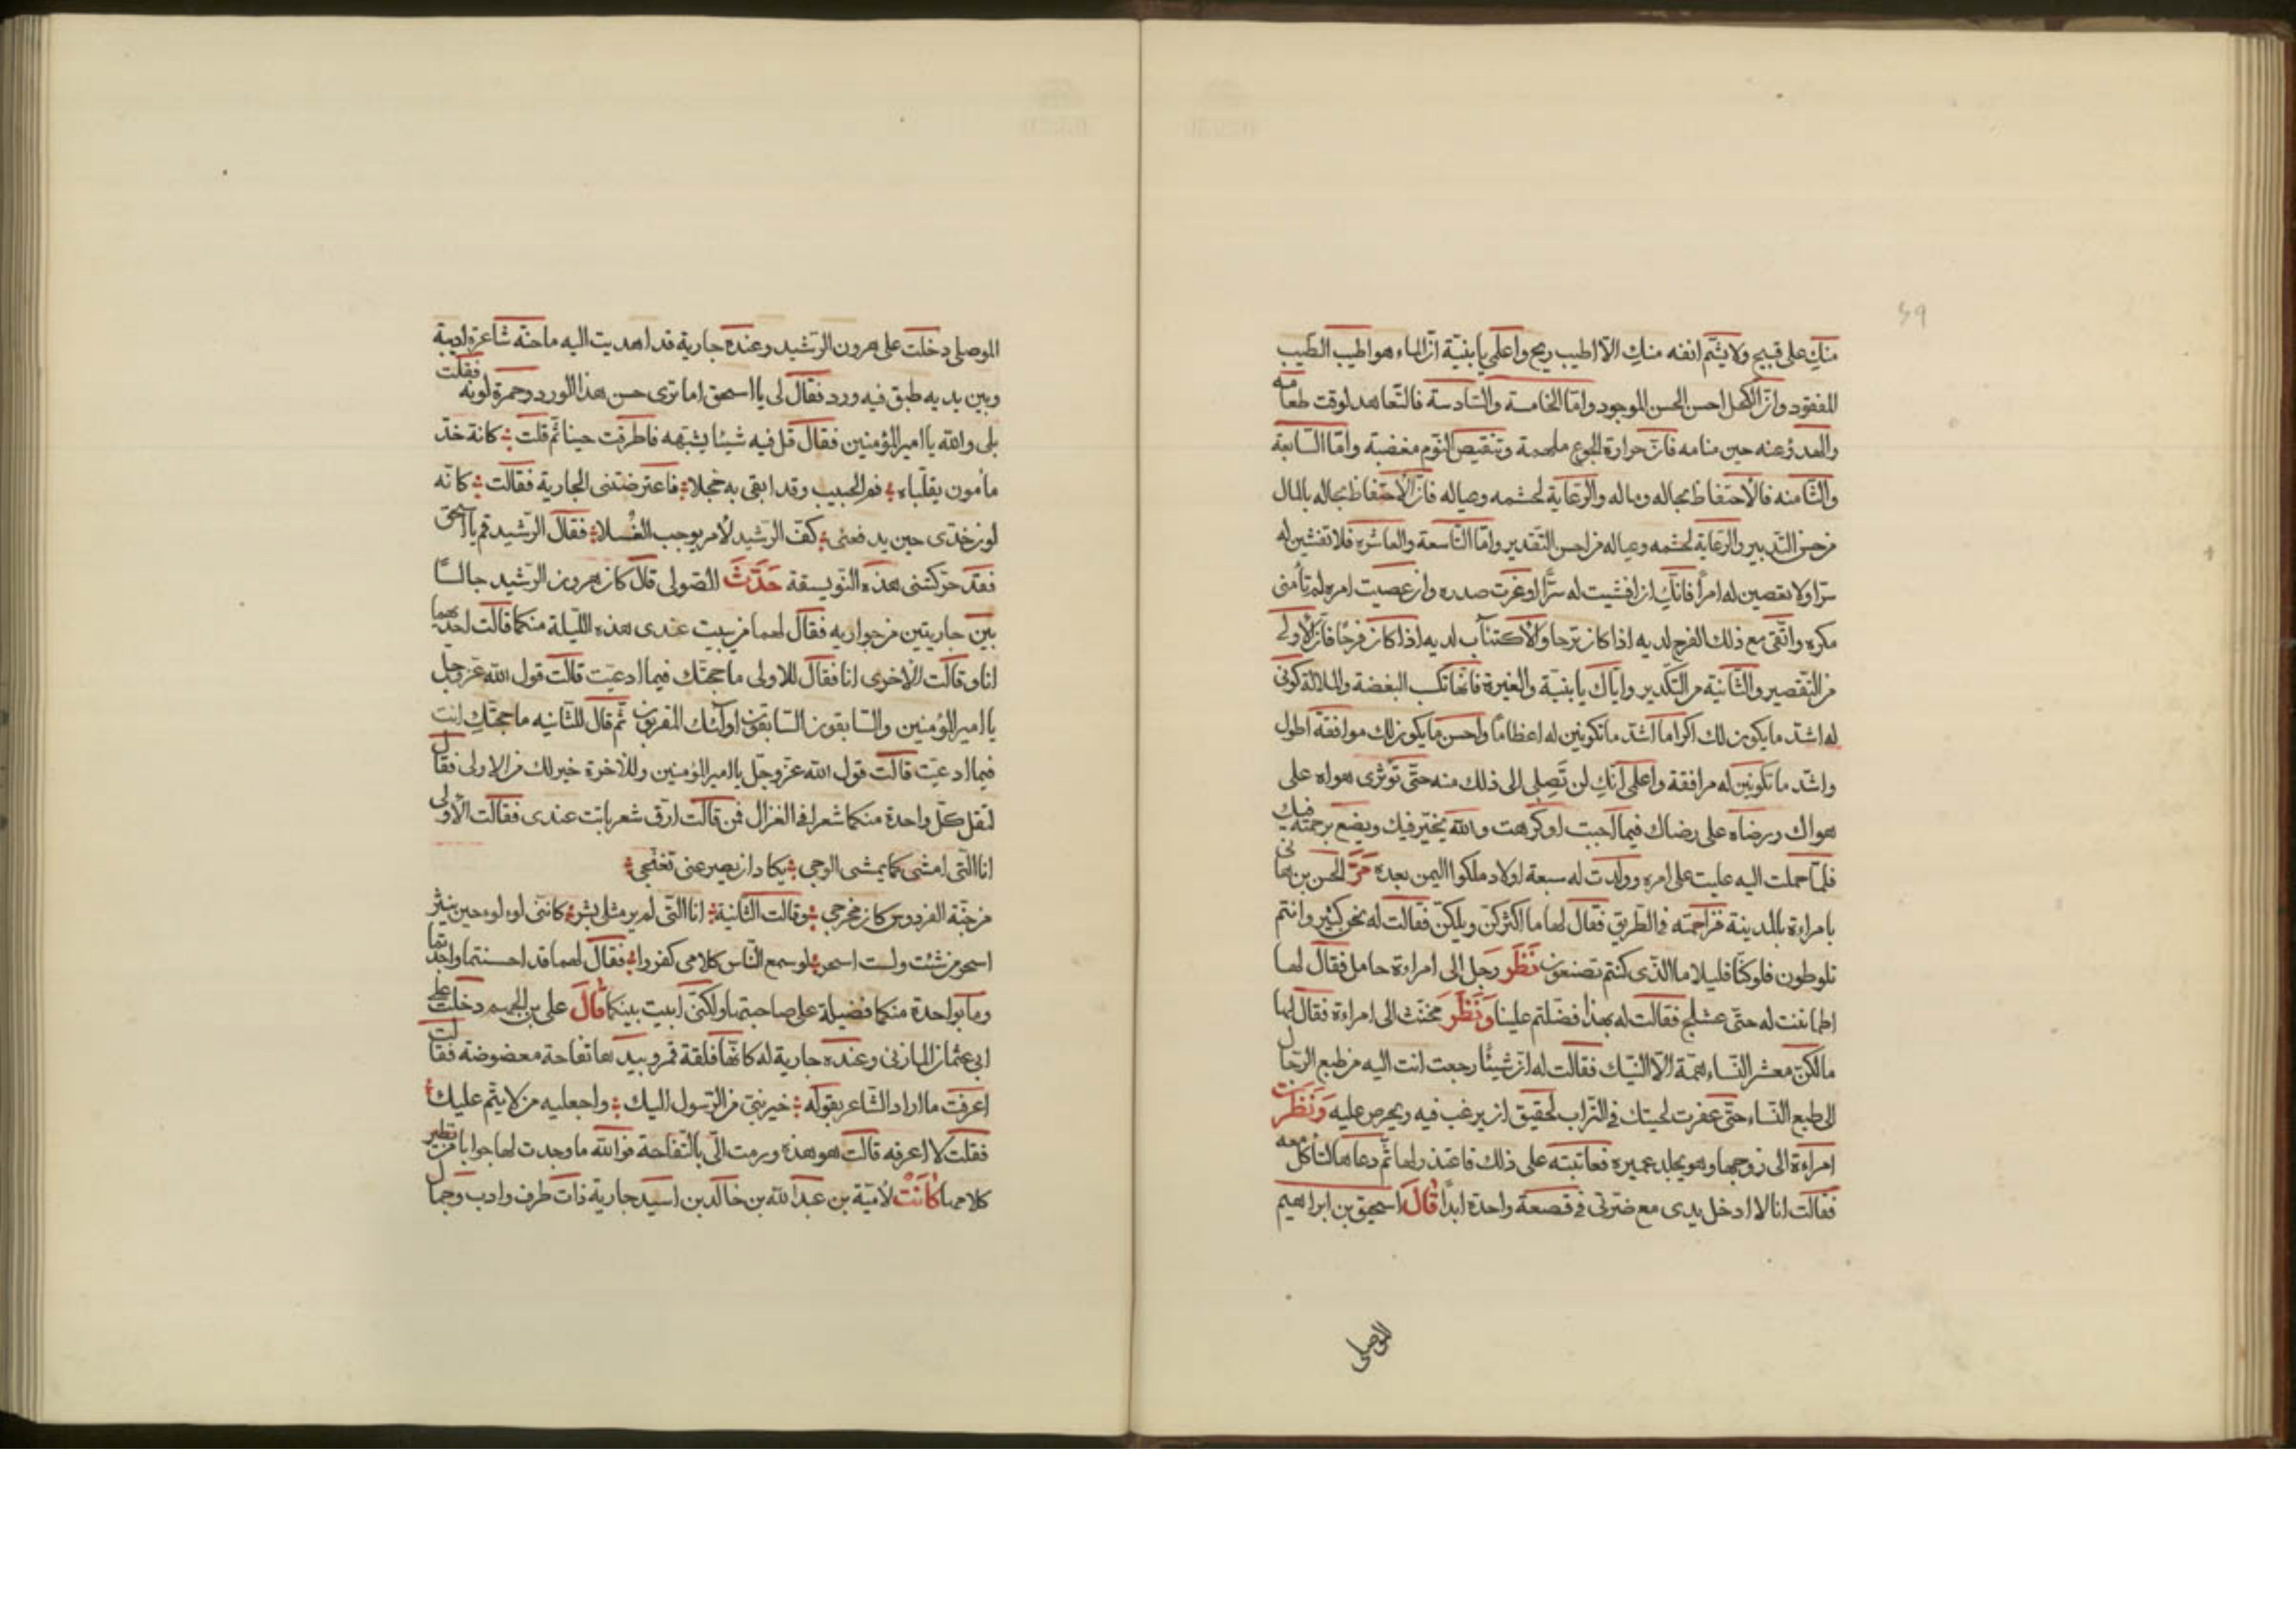 ٤٩
منكِ على قبيح ولا يشم انفه منكِ الا اطيب ريح واعلمى يا بنيّة انّ الماء هو اطيب الطيب
المفقود وانّ الكحل احسن الحسن الموجود وامّا الخامسة والسّادسة فالتّعاهد لوقت طعامه
والهدوّ عنه حين منامه فانّ حرارة الجوع ملهبة وتنقيص النّوم مغضبة وامّا السّابعة
والثّامنه فالاحتفاظ بحاله وماله والرعاية لحشمه وعياله فانّ الاحتفاظ بحاله بالمال
من حسن التّدبير والرعاية لحشمه وعياله من احسن التّقدير وامّا التّاسعة والعاشره فلا تفشين له
سرّا ولا تعصين له امراً فانّكِ ان افشيت له سرّاً اوغرت صدره وان عصيت امره لم تأمنى
مكره واتّقى مع ذلك الفرح لديه اذا كان ترحا والاكتئاب لديه اذا كان فرحًا فانّ الاولى
من التّقصير والثّانية من التّكدير وايّاك يا بنيّة والغيرة فانّها تكسب البغضة والملالة كونى
له اشدّ ما يكون لك اكراما اشدّ ما تكونين له اعظامًا واحسن ما يكون لك موافقة اطول
واشدّ ما تكونين له مرافقة واعلمى انّكِ لن تصلى الى ذلك منه حتّى تؤثرى هواه على
هواك ورضاه على رضاك فيما احببت او كرهت والله يخيّر فيك ويضع برحمته فيك
فلمّا حملت اليه غلبت على امره وولدت له سبعة اولاد ملكوا اليمن بعده مَرَّ الحسن بن هانى
بامراءة بالمدينة فزاحمته فى الطريق فقال لها ما اكثركنّ ويلكنّ فقالت له نحن كثير وانتم
تلوطون فلو كنّا قليلا ما الّذى كنتم تصنعون نَظَرَ رجل الى امراءة حامل فقال لها
اطمأننت له حتى عشلج فقالت له بهذا فضّلتم علينا وَنَظَرَ مخنّث الى امراءة فقال لها
مالكنّ معشر النّساء همّة الّا النّيك فقالت له انّ شيئًا رجعت انت اليه من طبع الرجال
الى طبع النّساء حتّى عفرت لحيتك فى التّراب لحقيق ان يرغب فيه ويحرص عليه وَنَظَرَت
امراءة الى زوجها وهو يجلد عميره فعاتبته على ذلك فاعتذر لها ثمّ دعاها لتأكل معه
فقالت انا لا ادخل يدى مع ضرتى فى قصعة واحدة ابداً قَالَ اسحق بن ابراهيم
الموصلى
الموصلى دخلت على هرون الرشيد وعنده جارية قد اهديت اليه ماجنة شاعرة اديبة
وبين يديه طبق فيه ورد فقال لى يا اسحق اما ترى حسن هذا الورد وحمرة لونه فقلت
بلى والله يا امير المؤمنين فقال قل فيه شيئا يشبّهه فاطرقت حينا ثمّ قلت كانّه خدّ
مأمون يقلّباه فم الحبيب وقد ابقى به خجلا فاعترضتنى الجارية فقالت كانّه
لون خدّى حين يدفعنى كفّ الرشيد لامر يوجب الغُسلا فقال الرشيد قم يا اسحق
فقد حرّكتنى هذه الفويسقة حَدَّثَ الصّولى قال كان هرون الرّشيد جالسًا
بين جاريتين من جواريه فقال لهما من يبيت عندى هذه اللّيلة منكما قالت احديهما
انا وقالت الاخرى انا فقال للاولى ما حجّتك فيما ادعيت قالت قول الله عزّ وجلّ
يا امير المؤمنين والسّابقون السّابقون اولئك المقربون ثمّ قال للثّانيه ما حجّتكِ انت
فيما ادعيت قالت قول الله عزّ وجلّ يا امير المؤمنين وللاخرة خير لك من الاولى فقال
لتقل كلّ واحدة منكما شعرا فى الغزال فمن قالت ارق شعر باتت عندى فقالت الاولى
انا التى امشى كما يمشى الوجى يكاد ان يصيرعنى تغنّجى
من جنّة الفردوس كان مخرجى وقالت الثانية انا التّى لم ير مثلى بشر كانّنى لوء لوء حين ينثر
اسحر من شئت ولست اسحر لو سمع النّاس كلامى كفروا فقال لهما قد احسنتما واجدتما
وما بواحدة منكما فضيلة على صاحبتها ولكنّى ابيت بينكما قَالَ على بن الجهم دخلت على
ابى عثمان المازنى وعنده جارية له كانّها فلقة قمر وبيدها تفاحة معضوضة فقالت
اعرفت ما اراد الشّاعر بقوله خبرينى من الرّسول اليك واجعليه من لا ينمّ عليك
فقلت لا اعرفه قالت هو هذه ورمت الىّ بالتّفاحة فوالله ما وجدت لها جوابا من نظير
كلامها كَانَتْ لاميّة بن عبد الله بن خالد بن اسيد جارية ذات ظرف وادب وجمال